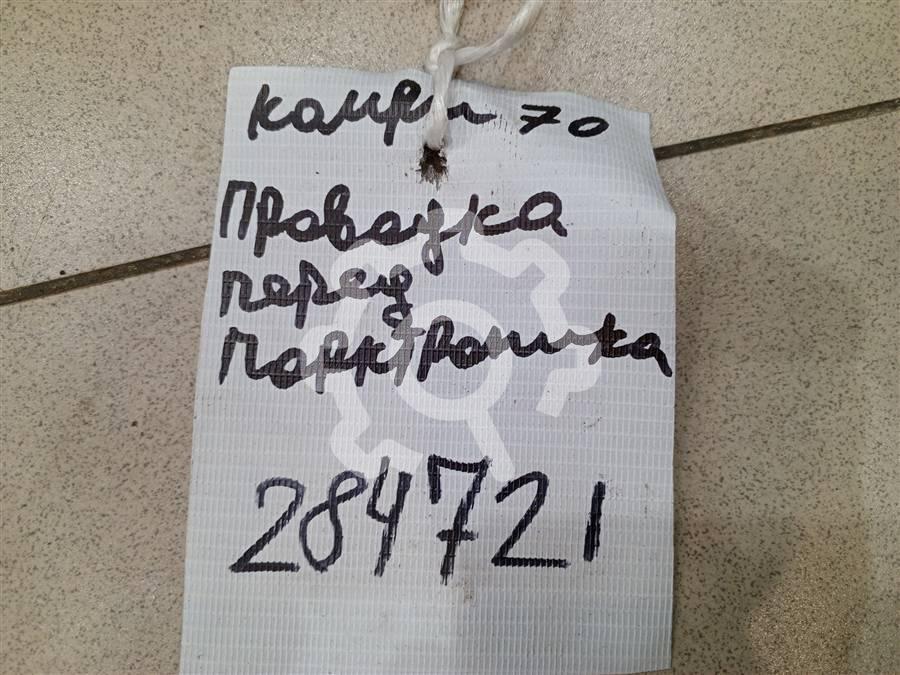 камри 70
Проводка
перед
парктроника
284721